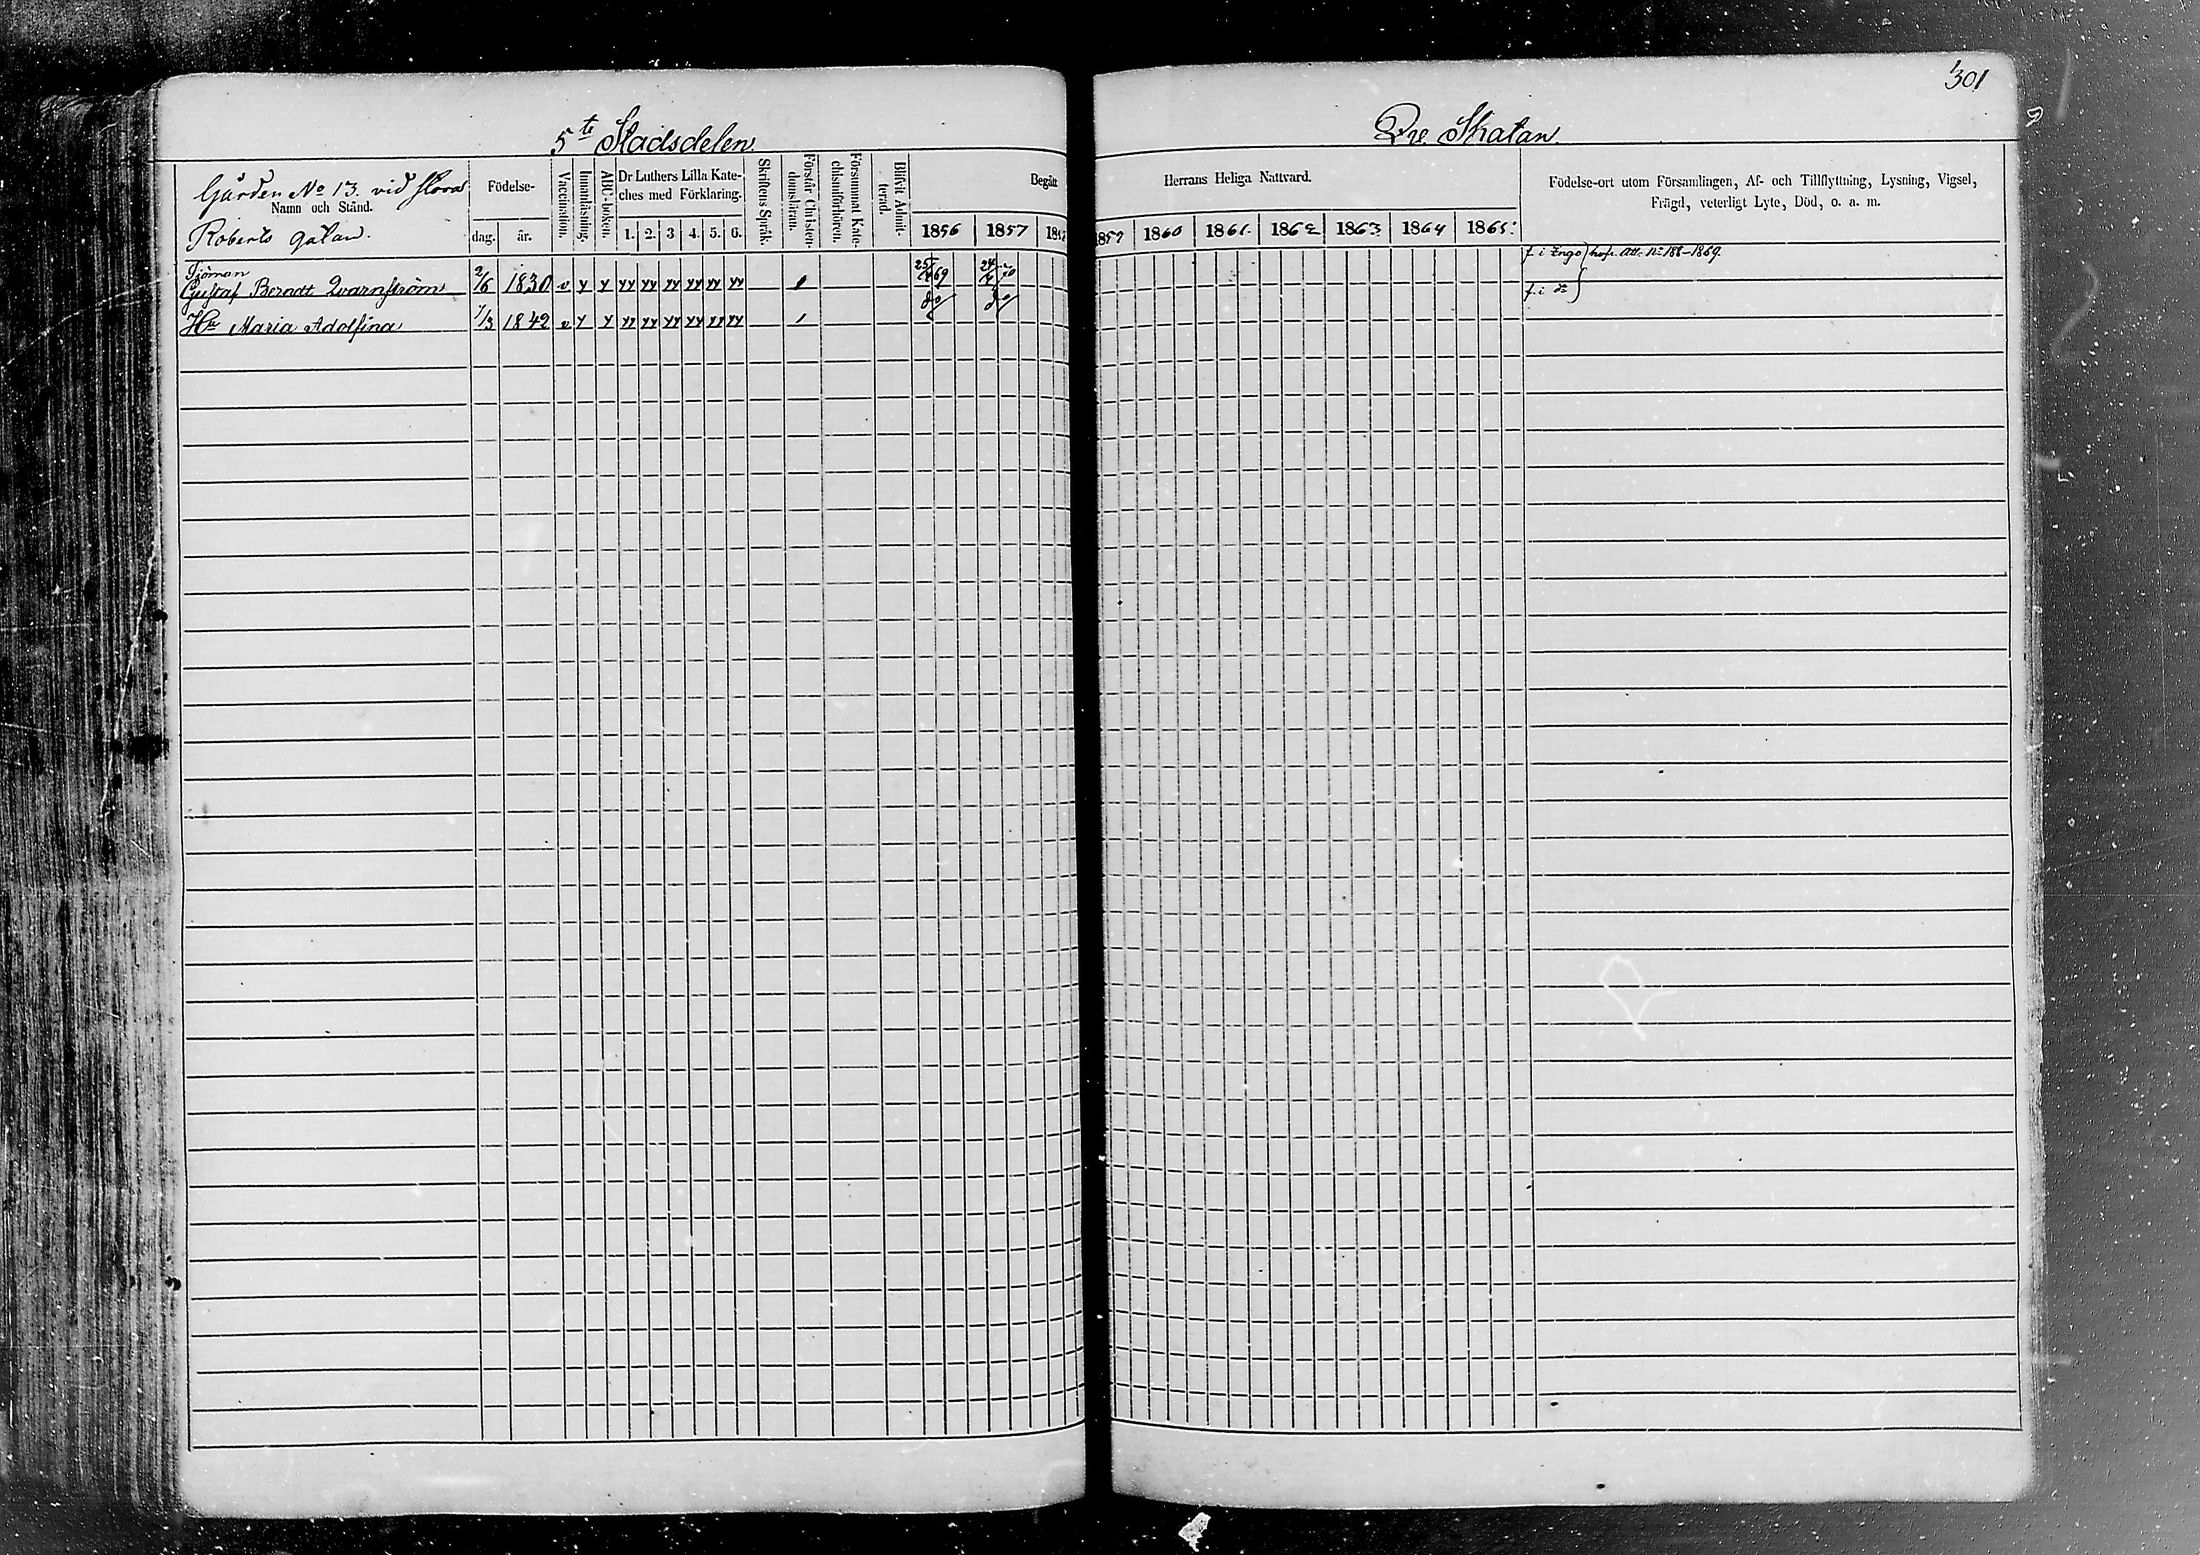 301
5te Stadsdelen
Qv. Skatan.
Gården No 13. vid stora
Namn och Stånd.
Roberts gatan.
Födelse-
dag.
år.
Vaccination.
Innanläsning.
ABC-boken.
Dr Luthers Lilla Kate-
ches med Förklaring.
1. 2. 3 4. 5. 6.
Skriftens Språk.
Förstår Christen-
domsläran.
Försummat Kate-
chismiförhören.
Blifvit Admit-
terad.
Begått
Herrans Heliga Nattvard.
1856 1857
1859 1860 1861. 1862 1863 1864 1865.
Födelse-ort utom Församlingen, Af- och Tillflyttning, Lysning, Vigsel,
Frägd, veterligt Lyte, Död, o. a. m.
Sjöman
Gustaf Berndt Qvarnström 2/6 1830 v y y yy yy yy yy yy yy
25/4 69
f. i Engo
att. No 188-1869.
Hu Maria Adolfina 1/3 1842 v y y yy yy yy yy yy yy
do do
f. i do